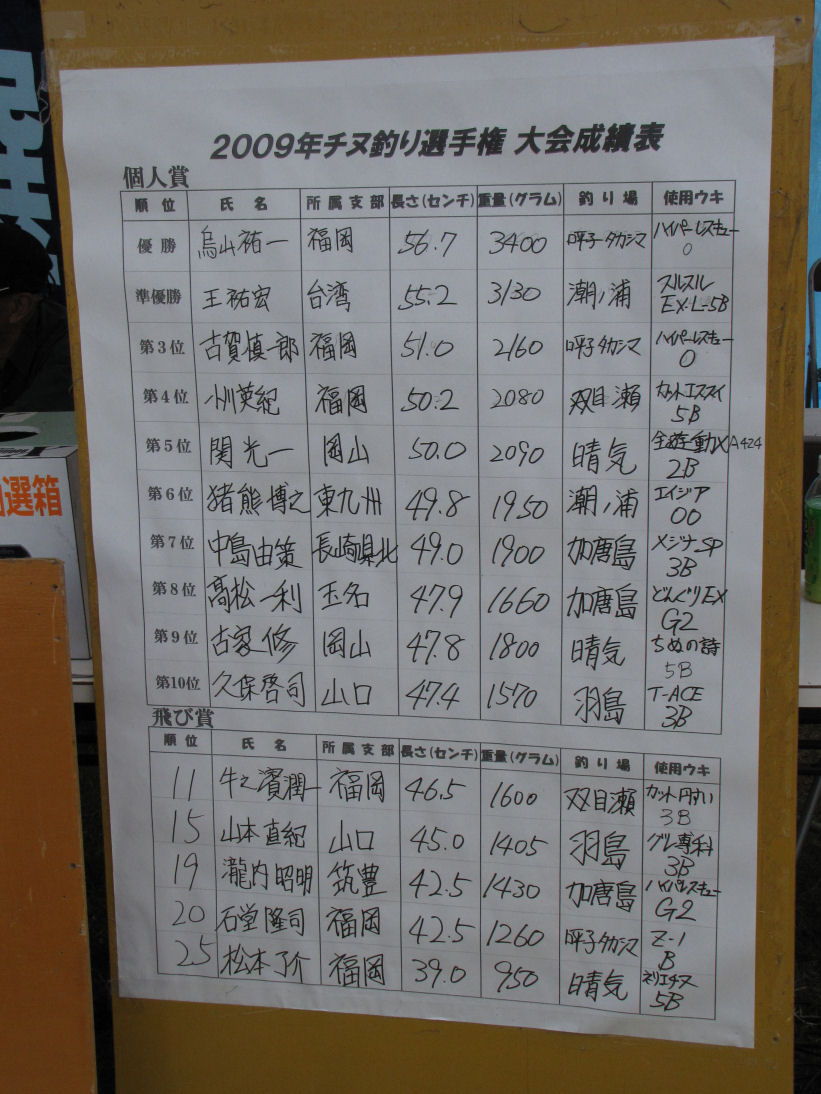 2009年チヌ釣り選手権 大会成績表
個人賞
順位 氏名 所属支部 長さ(センチ) 重量(グラム) 釣り場 使用ウキ
優勝 烏山祐一 福岡 56.7 3400 呼子タカシマ ハイパーレスキュー 0
準優勝 王祐宏 台湾 55.2 3130 潮ノ浦 スルスル EX-L-5B
第3位 古賀慎一郎 福岡 51.0 2160 呼子タカシマ ハイパーレスキュー 0
第4位 小川英紀 福岡 50.2 2080 双目瀬 5B
第5位 関光一 岡山 50.0 2090 晴気 全遊動X A424 2B
第6位 猪熊博之 東九州 49.8 1950 潮ノ浦 エイジア 00
第7位 中島由策 長崎県北 49.0 1900 加唐島 メジナSP 3B
第8位 高松一利 玉名 47.9 1660 加唐島 どんぐりEX G2
第9位 古家修 岡山 47.8 1800 晴気 ちぬの詩 5B
第10位 久保啓司 山口 47.4 1570 羽島 T-ACE 3B
飛び賞
順位 氏名 所属支部 長さ(センチ) 重量(グラム) 釣り場 使用ウキ
11 牛之濱潤一 福岡 46.5 1600 双目瀬 3B
15 山本直紀 山口 45.0 1405 羽島 グレ専科 3B
19 瀧内昭明 筑豊 42.5 1430 加唐島 ハイパーレスキュー G2
20 石堂隆司 福岡 42.5 1260 呼子タカシマ Z-1 B
25 松本了介 福岡 39.0 950 晴気 5B
選箱